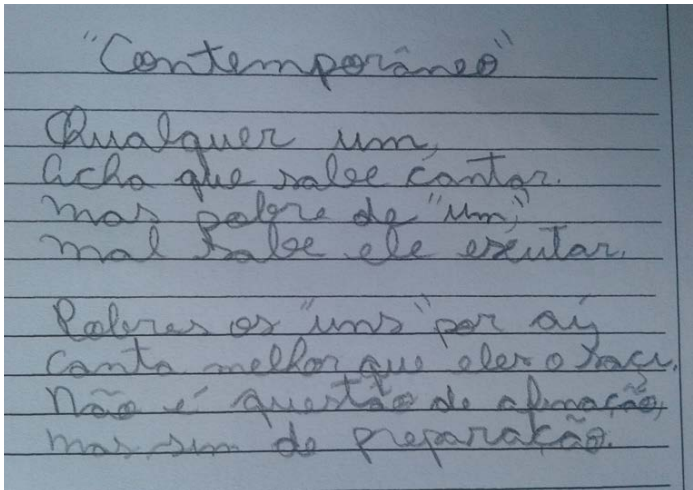 "Contemporâneo"
Qualquer um,
Acha que sabe cantar.
mas pobre do "um",
mal sabe ele escutar.
Pobres os "uns" por aí,
Canta melhor que eles o saci.
Não é questão de afinação,
mas sim de preparação.